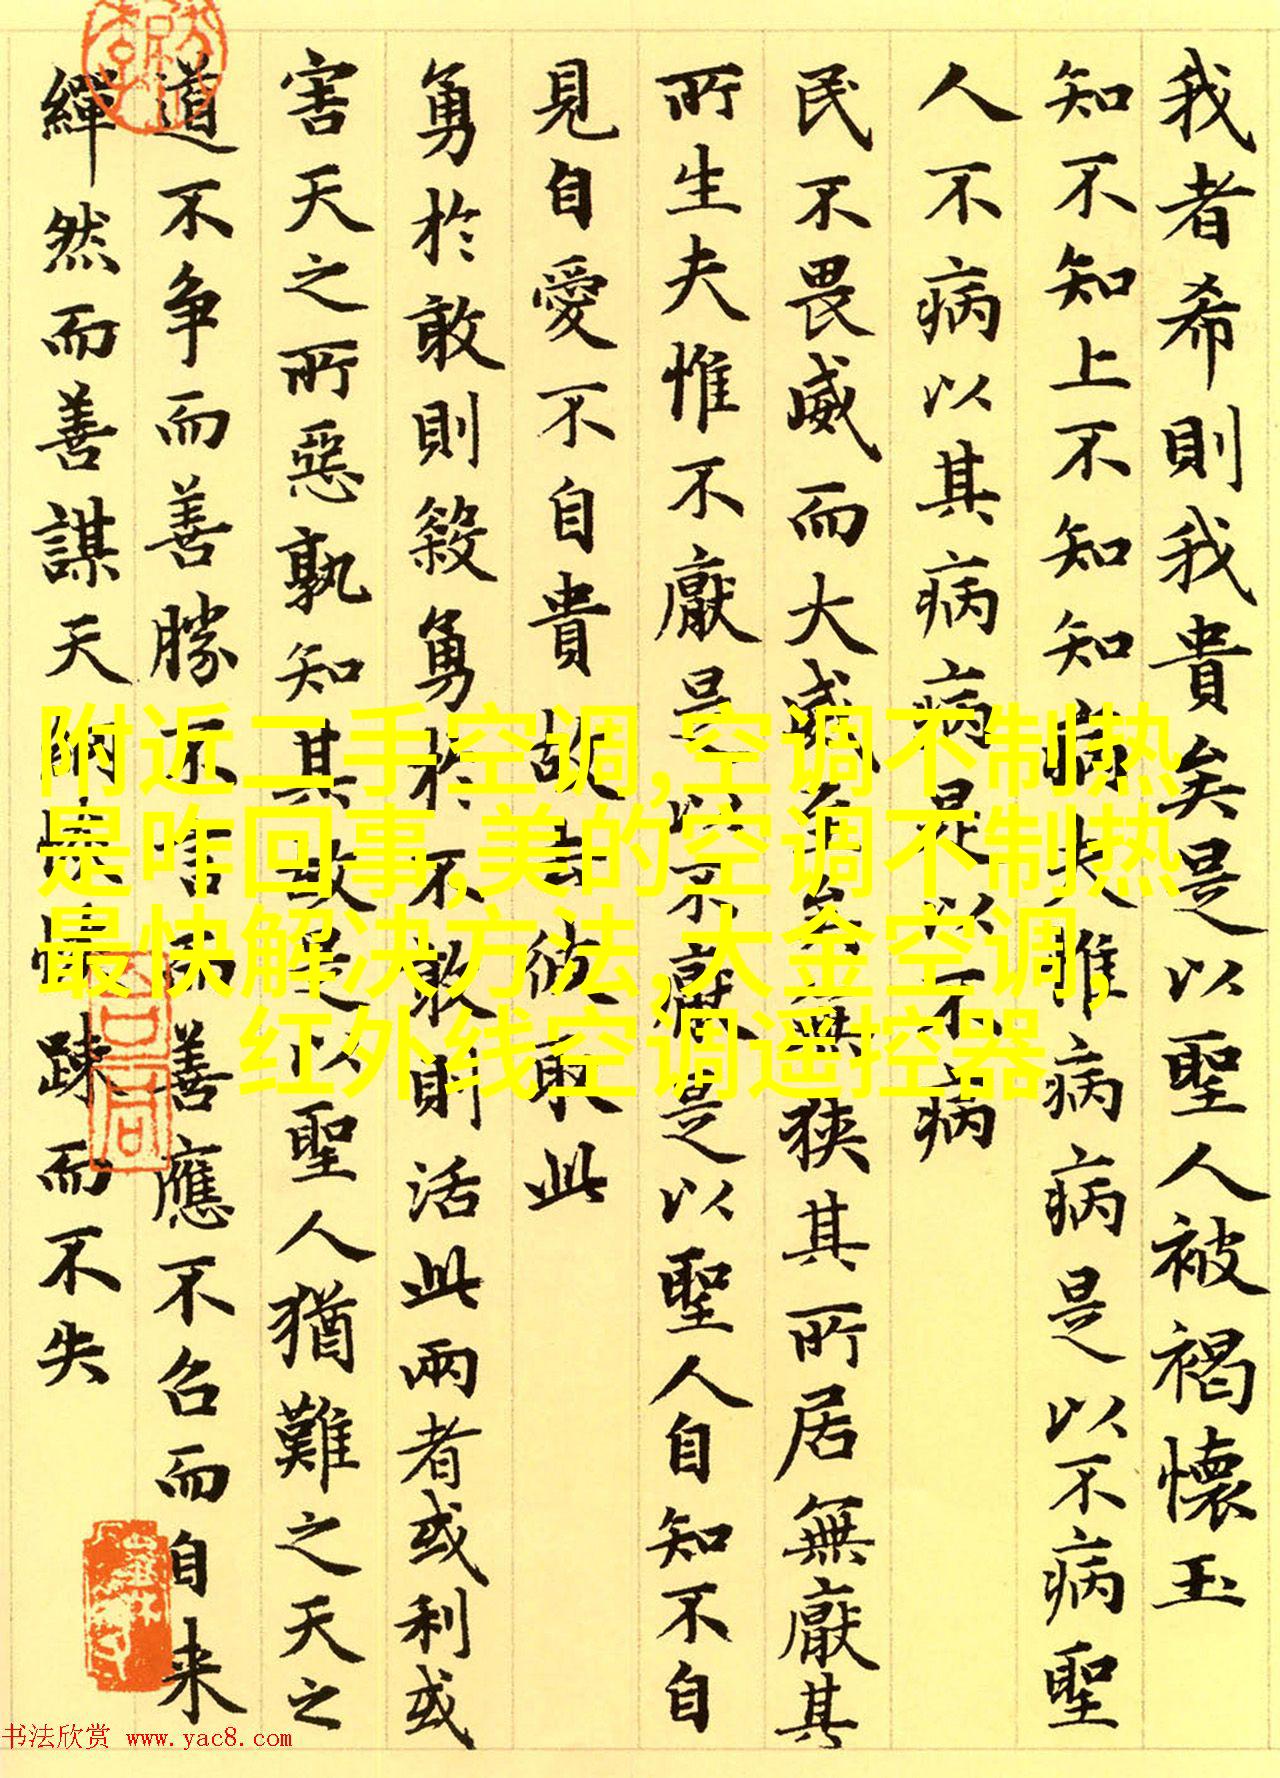 我者希則我貴矣是以聖人被褐懷玉
知不知上不知知病夫唯病病是以不病聖
人不病以其病病是以不病
民不畏威而大威至矣無狹其所居無厭其
所生夫惟不厭是以不厭是以聖人自知不自
見自愛不自貴故去彼取此
勇於敢則殺勇於不敢則活此兩者或利或
害天之所惡孰知其故是以聖人猶難之天之
道不争而善勝不言而善應不召而自来
繟然而善謀天網恢恢踈而不失
附近二手空调,空调不制热
是咋回事,美的空调不制热
最快解决方法,大金空调,
红外线空调遥控器
书法欣赏 www.yac8.com